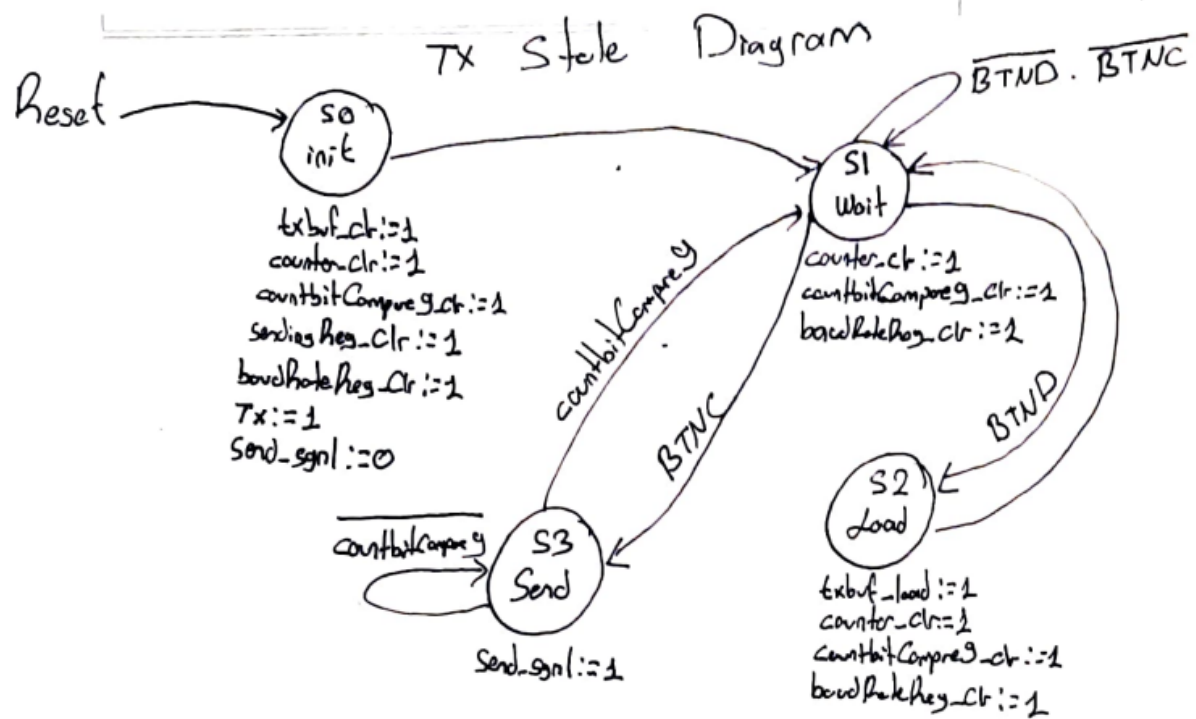 TX State Diagram
Reset
S0
init
txbuf_clr:=1
counter_clr:=1
countbitCompare9_clr:=1
sendingReg_Clr:=1
baudRateReg_Clr:=1
Tx:=1
Send_sgnl:=0
BTND . BTNC
S1
Wait
counter_clr:=1
countbitCompare9_Clr:=1
baudRateReg_Clr:=1
countbitCompare9
BTNC
BTND
S2
Load
txbuf_load:=1
counter_Clr:=1
countbitCompare9_clr:=1
baudRateReg_Clr:=1
countbitCompare9
S3
Send
Send_sgnl:=1